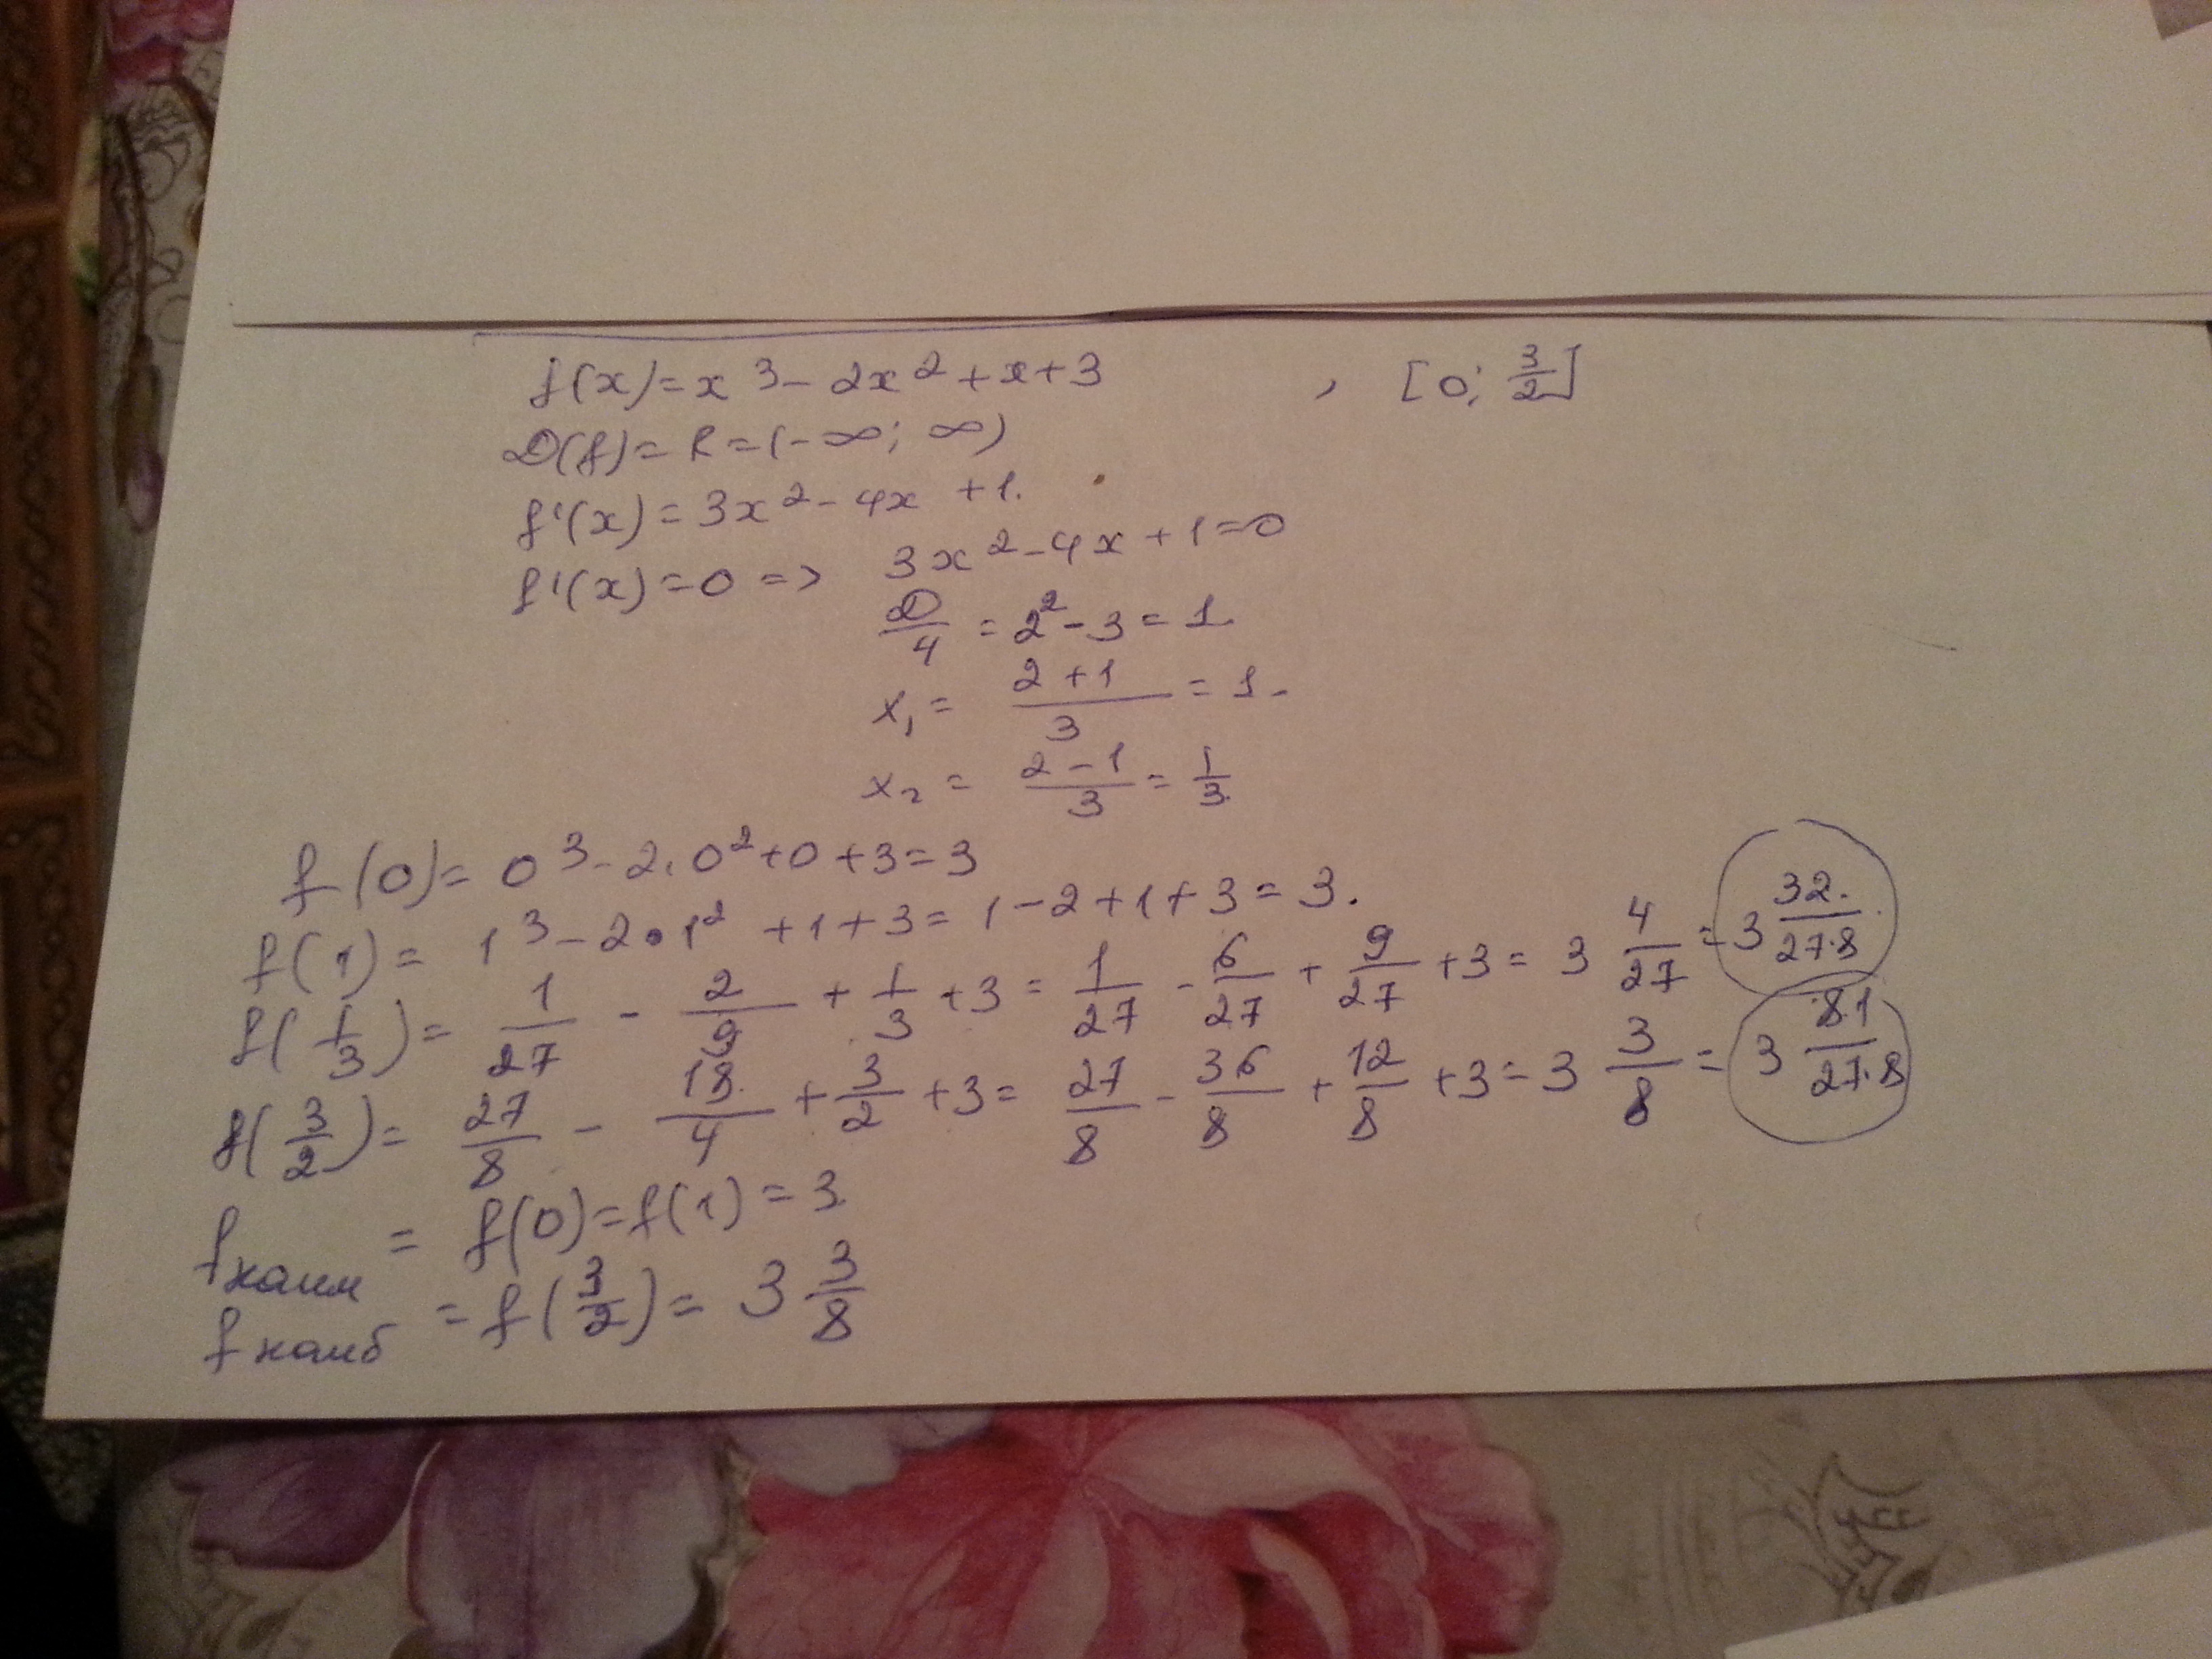 f(x)=x³-2x²+x+3 , [0; 3/2]
D(f)=R=(-∞; ∞)
f'(x)=3x²-4x+1.
f'(x)=0 => 3x²-4x+1=0
D/4 = 2²-3=1.
x₁ = (2+1)/3 = 1.
x₂ = (2-1)/3 = 1/3
f(0)= 0³-2·0²+0+3=3
f(1)= 1³-2•1²+1+3= 1-2+1+3=3.
f(1/3)= 1/27 - 2/9 + 1/3 +3= 1/27 - 6/27 + 9/27 +3= 3 4/27 = 3 32/27·8
f(3/2)= 27/8 - 18/4 + 3/2 +3= 27/8 - 36/8 + 12/8 +3= 3 3/8 = 3 81/27·8
fнаим = f(0)=f(1)=3
fнаиб = f(3/2)= 3 3/8